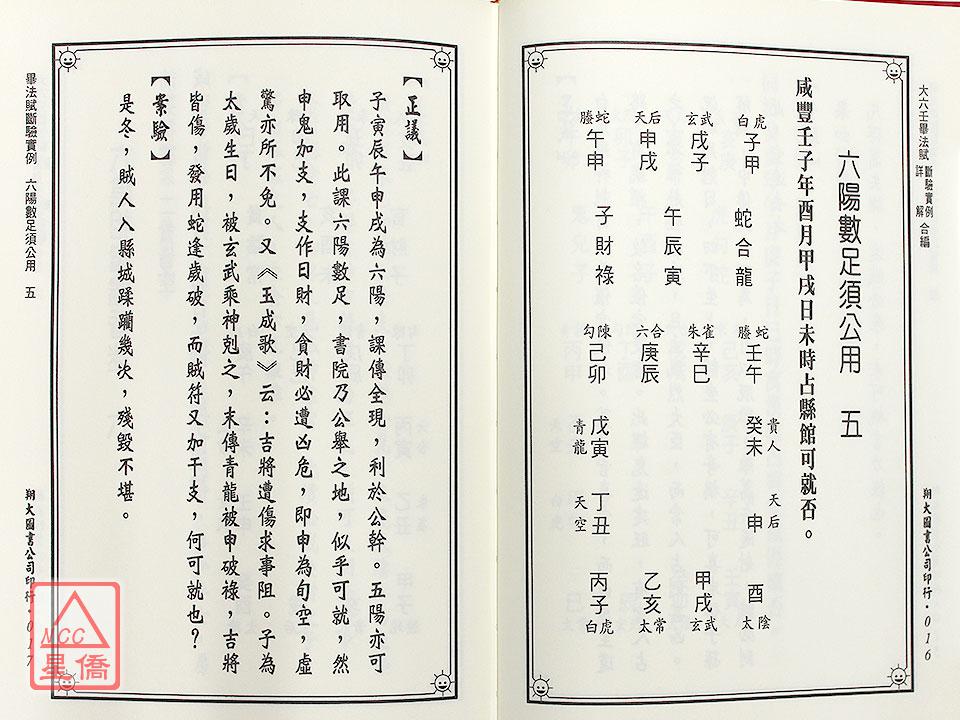 大六壬畢法賦 斷驗實例 詳解 合編
六陽數足須公用 五
咸豐壬子年酉月甲戌日未時占縣館可就否。
白虎 玄武 天后 螣蛇
子甲 戌子 申戌 午申
蛇合龍
午辰寅
子財祿
螣蛇 朱雀 六合 勾陳
壬午 辛巳 庚辰 己卯
貴人 癸未 戊寅 青龍
天后 申 丁丑 天空
酉 甲戌 乙亥 丙子
太陰 玄武 太常 白虎
翔大圖書公司印行·016
【正議】
子寅辰午申戌為六陽，課傳全現，利於公幹。五陽亦可
取用。此課六陽數足，書院乃公舉之地，似乎可就，然
申鬼加支，支作日財，貪財必遭凶危，即申為旬空，虛
驚亦所不免。又《玉成歌》云：吉將遭傷求事阻。子為
太歲生日，被玄武乘神剋之，末傳青龍被申破祿，吉將
皆傷，發用蛇逢歲破，而賊符又加干支，何可就也？
【案驗】
是冬，賊人入縣城蹂躪幾次，殘毀不堪。
畢法賦斷驗實例 六陽數足須公用 五
翔大圖書公司印行·017
NCC
星僑